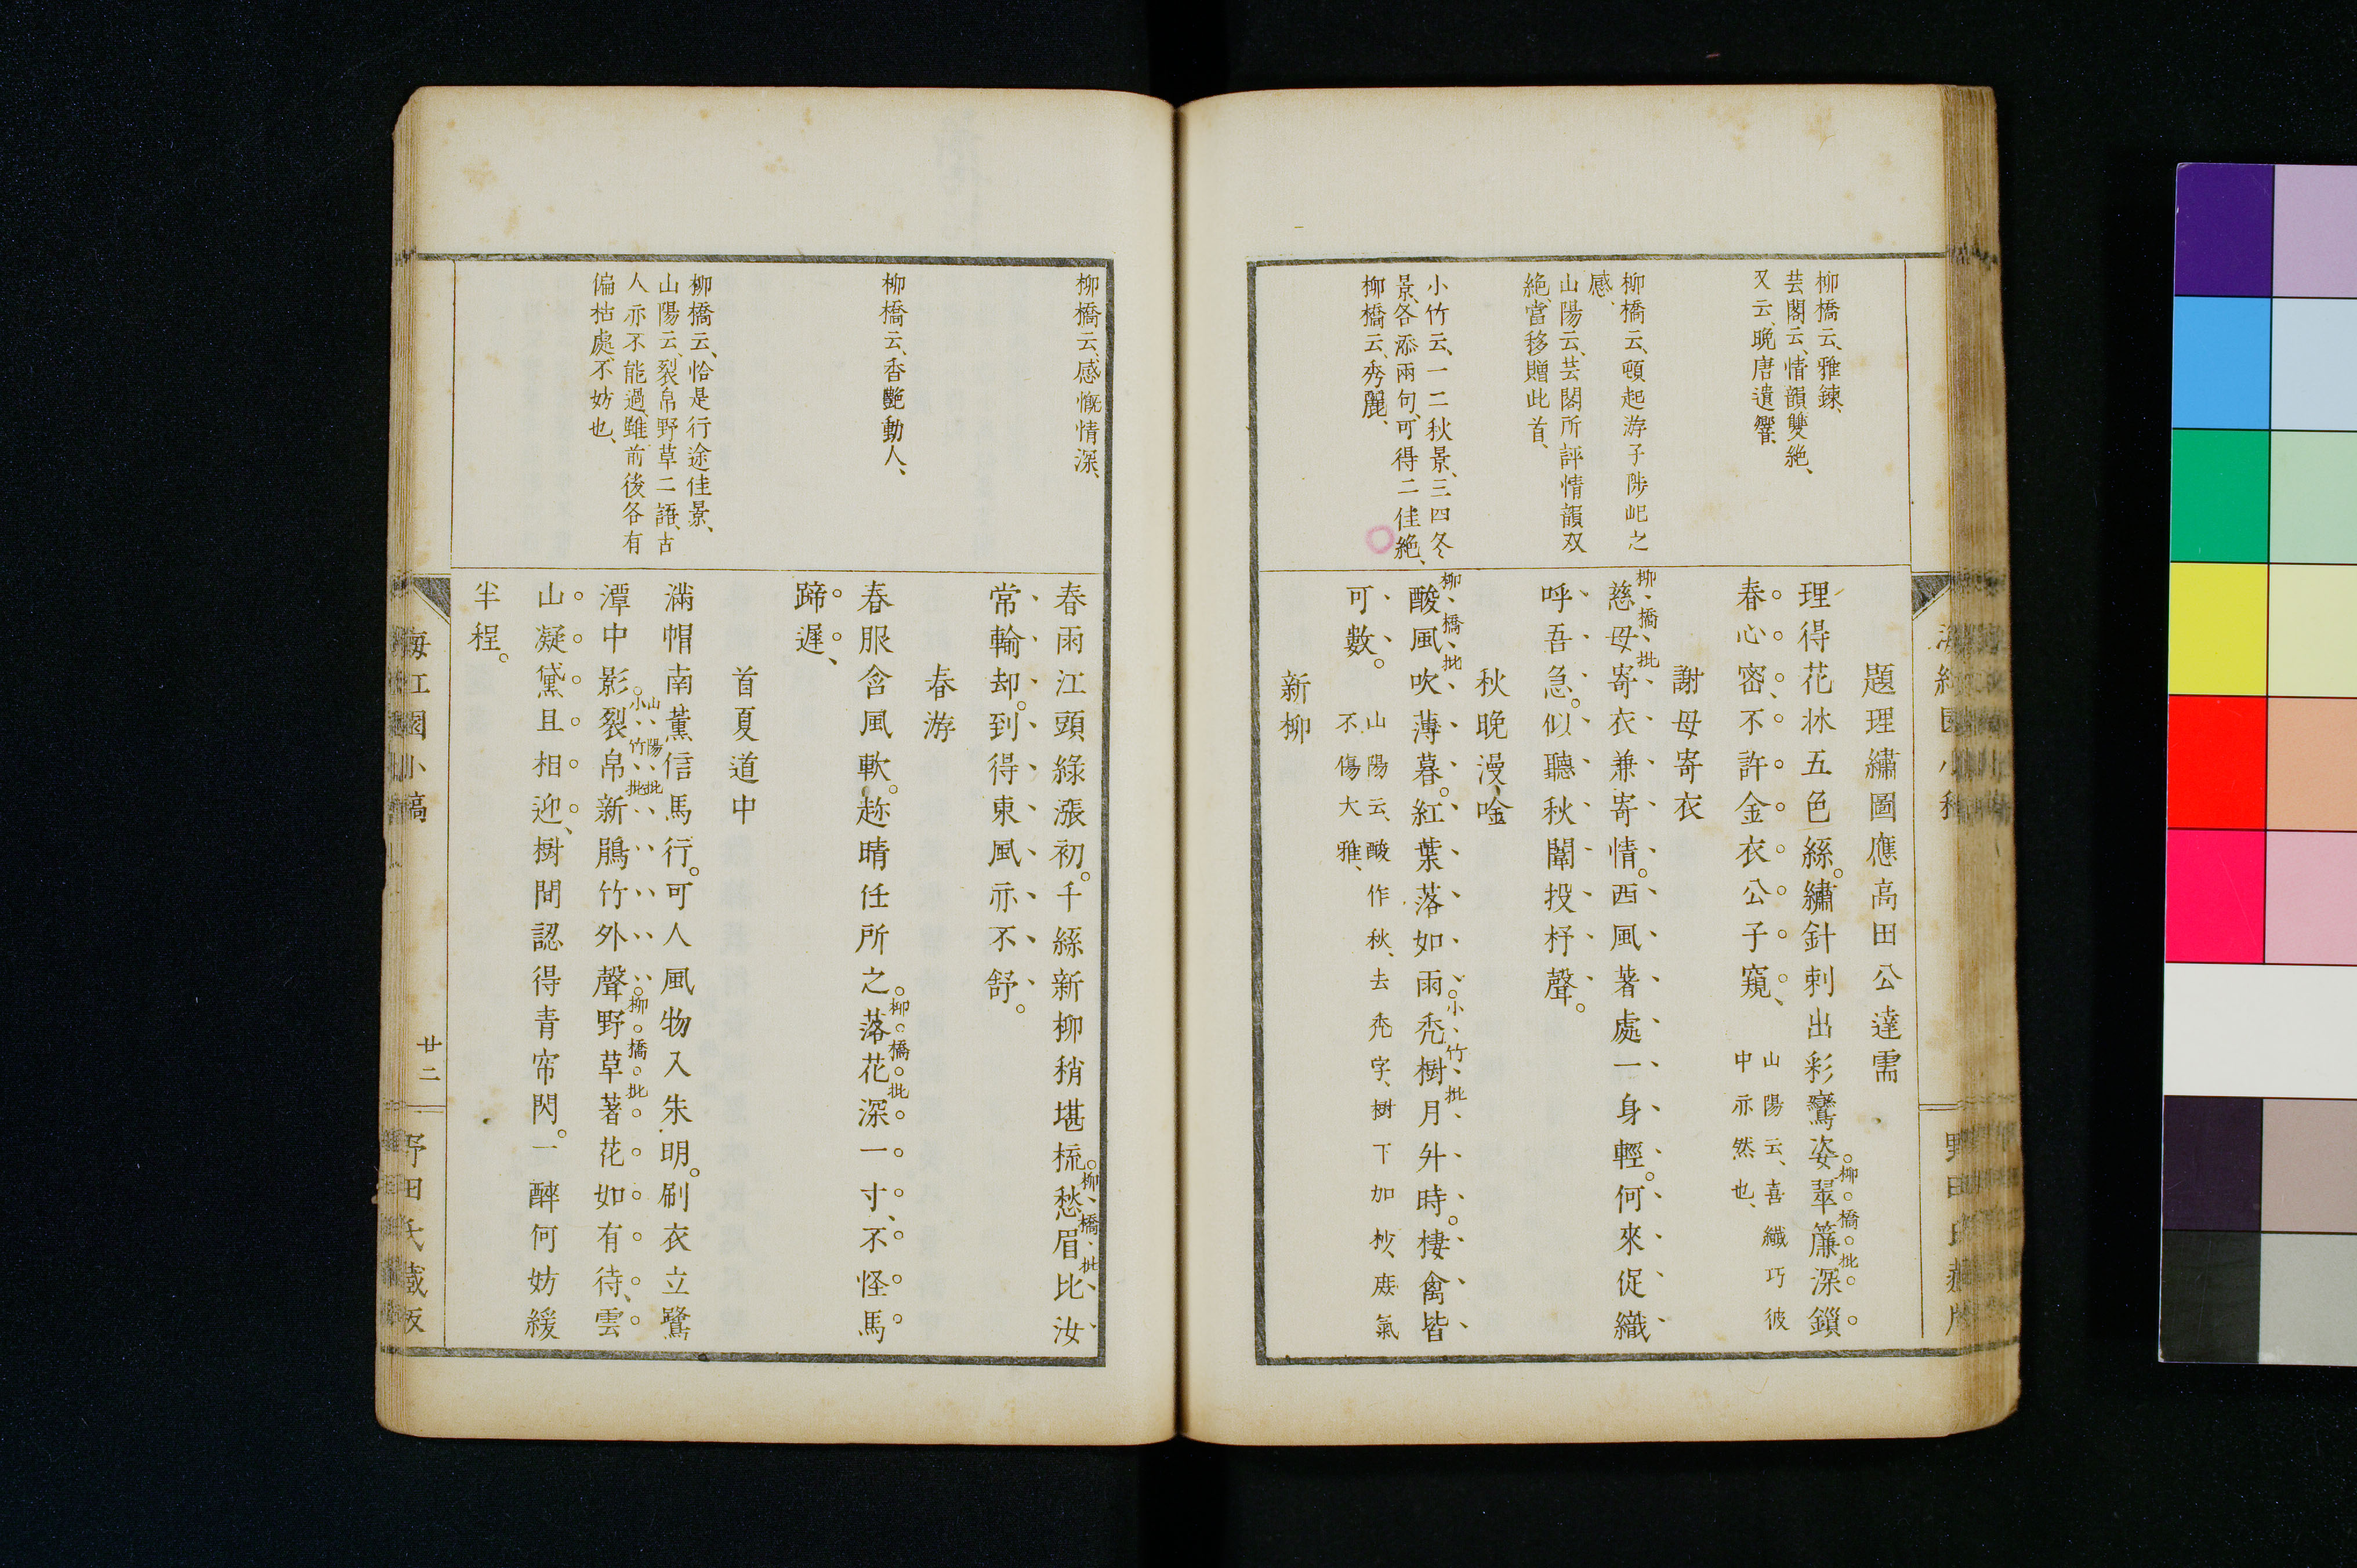 柳橋云、雅鍊、
芸閣云、情韻雙絶、
又云、晩唐遺響、
柳橋云、頓起游子陟岵之
感、
山陽云、芸閣所評情韻双
絶、當移贈此首、
小竹云、一二秋景、三四冬
景、各添兩句、可得二佳絶、
柳橋云、秀麗、
題理繡圖應高田公達需
理得花牀五色絲。繡針刺出彩鸞姿。翠簾深鎖
柳橋批
春心密、不許金衣公子窺、
山陽云、喜纖巧彼
中亦然也、
謝母寄衣
慈母寄衣兼寄情。西風著處一身輕。何來促織
柳橋批
呼吾急。似聽秋閨投杼聲。
秋晩漫唫
酸風吹薄暮。紅葉落如雨。禿樹月外時。棲禽皆
柳橋批
小竹批
可數。
山陽云、酸作秋、去禿字、樹下加杪、庶氣
不傷大雅、
新柳
柳橋云、感慨情深、
柳橋云、香艷動人、
柳橋云、恰是行途佳景、
山陽云、裂帛野草二語、古
人亦不能過、雖前後各有
偏枯處、不妨也、
春雨江頭綠漲初。千絲新柳稍堪梳。愁眉比汝
柳橋批
常輸却。到得東風亦不舒。
春游
春服含風軟。趂晴任所之。落花深一寸、不怪馬
柳橋批
蹄遲、
首夏道中
滿帽南薰信馬行。可人風物入朱明。刷衣立鷺
潭中影。裂帛新鵑竹外聲。野草著花如有待、雲
山陽批
小竹批
柳橋批
山凝黛且相迎、樹間認得青帘閃。一醉何妨緩
半程。
海紅園小稿
廿二
野田氏藏板